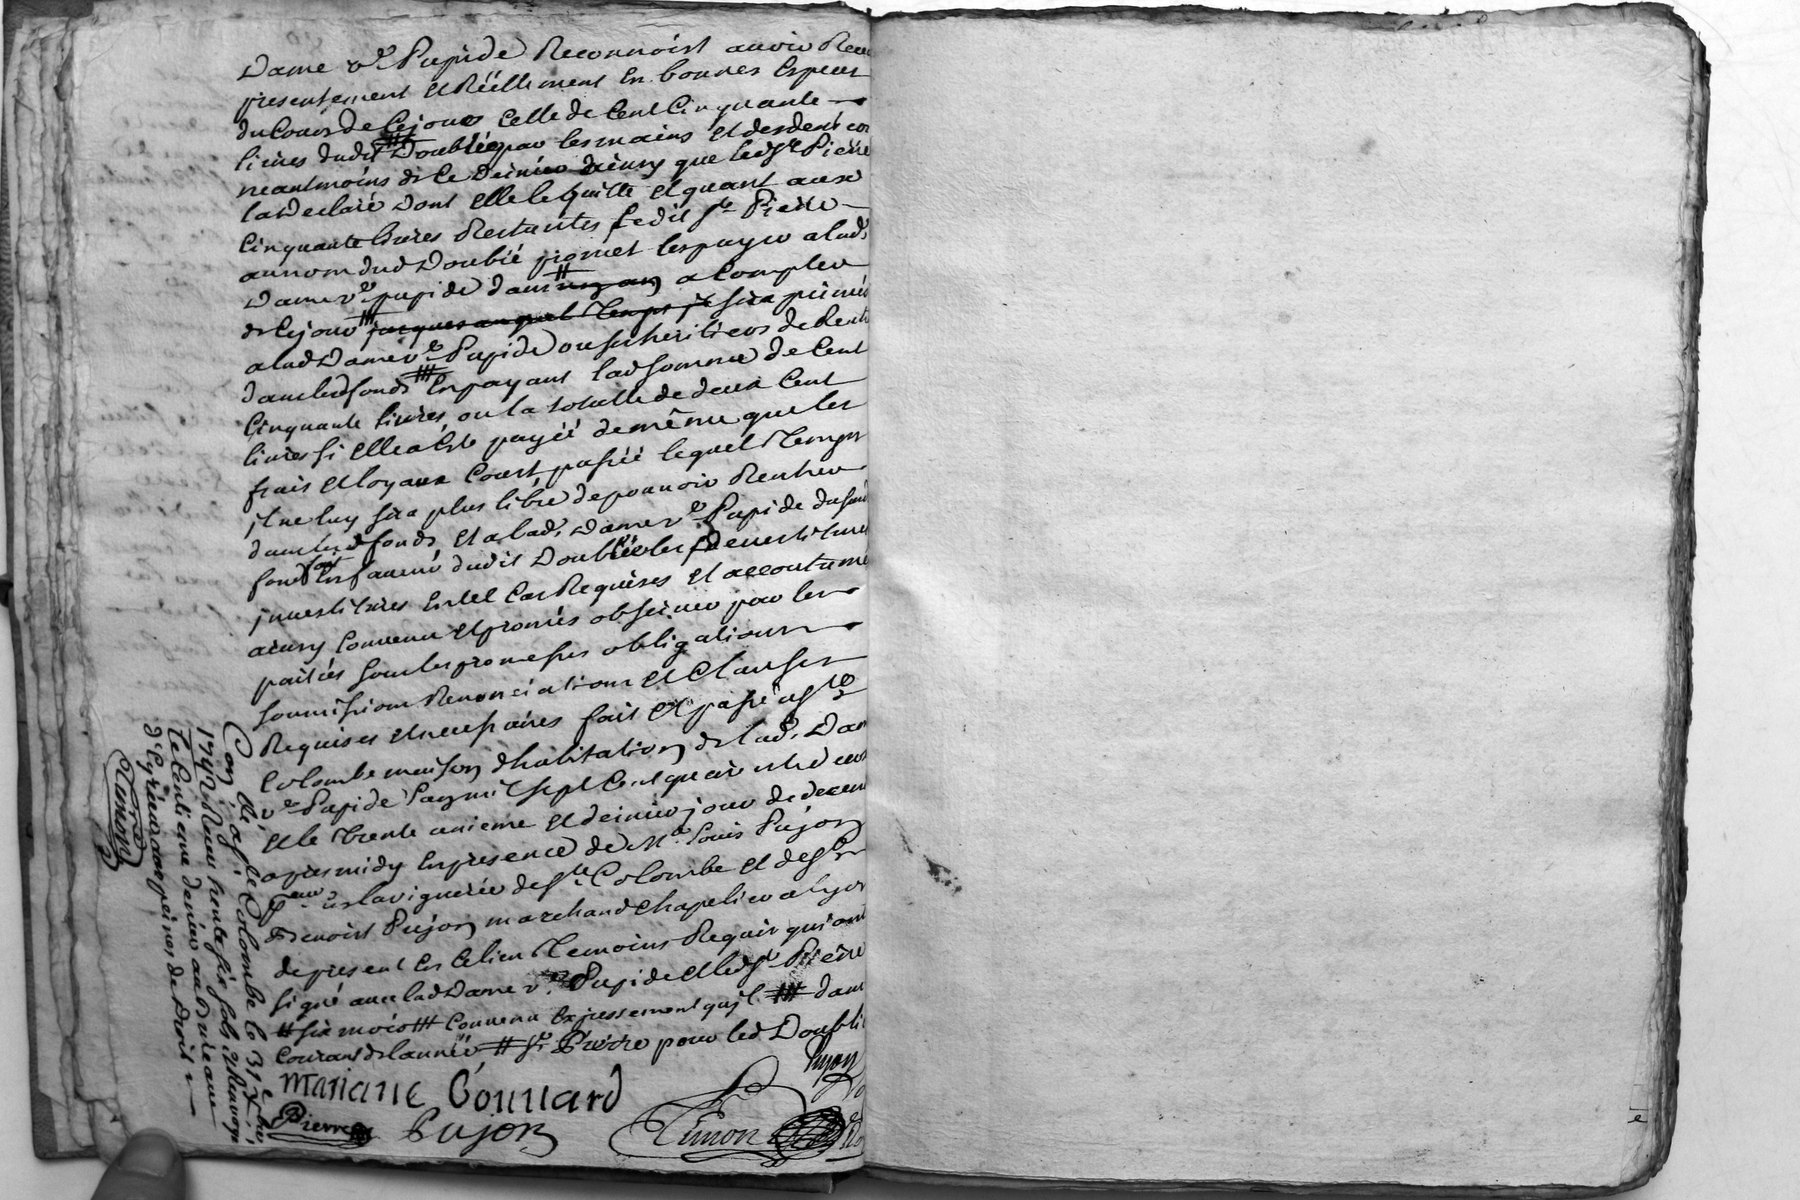 Dame v.e Pupide Reconnoist avoir Receu
presentement et Réellement En bonnes Especes
du Cours de Cejours Celle de Cent Cinquante
livres dudit Doublié par les mains et des deniers
neantmoins de Ce Dernier ainsy que led sr Pierre
la declaré dont Elle le quitte Et quant aux
Cinquante livres Restantes ledit sr Pierre
au nom dud Doublié promet les payer a lad.
Dame v.e pupide dans a Compter
de Cejour sera
a lad Dame v.e Pupide ou ses heritiers de Rentrer
dans led fonds En payant lad somme de Cent
Cinquante livres, ou la totalle de deux Cent
livres si Elle a Esté payée de même que les
frais Et loyaux Coust, passée lequel Temps
il ne luy sera plus libre de pouvoir Rentrer
dans led fonds Et a lad. Dame v.e Pupide
fond En faveur dudit Doublié les devestitures
investitures En tel Cas Requises Et accoutumé
ainsy Convenu Et promis observer par les
parties sous les promesses obligations
soumissions Renonciations Et Clauses
Requises Et necessaires fait Et passé a ste
Colombe maison d'habitation de lad. Dame
v.e Pupide L'an mil sept Cent quarante deux
Et le Trente unieme Et dernier jour de decembre
apres midy En presence de Me Louis Pujon
de la viguerie de ste Colombe Et de sr
Benoist Pujon marchand Chapelier a Lyon
de present En Ce lieu Temoins Requis qui ont
signé avec lad Dame v.e Pupide Et led sr Pierre
# six mois ## Convenu Expressement qu'il ### dans
Courant de l'année # sr Pierre pour led Doublié
Mariane Gonnard
Pujon
Pierre
Pujon
Simon
Con.lé a ste Colombe le 31 xbre
1742 Receu trente six sols
le Centieme denier au Bureau
a peines de droit
Simon